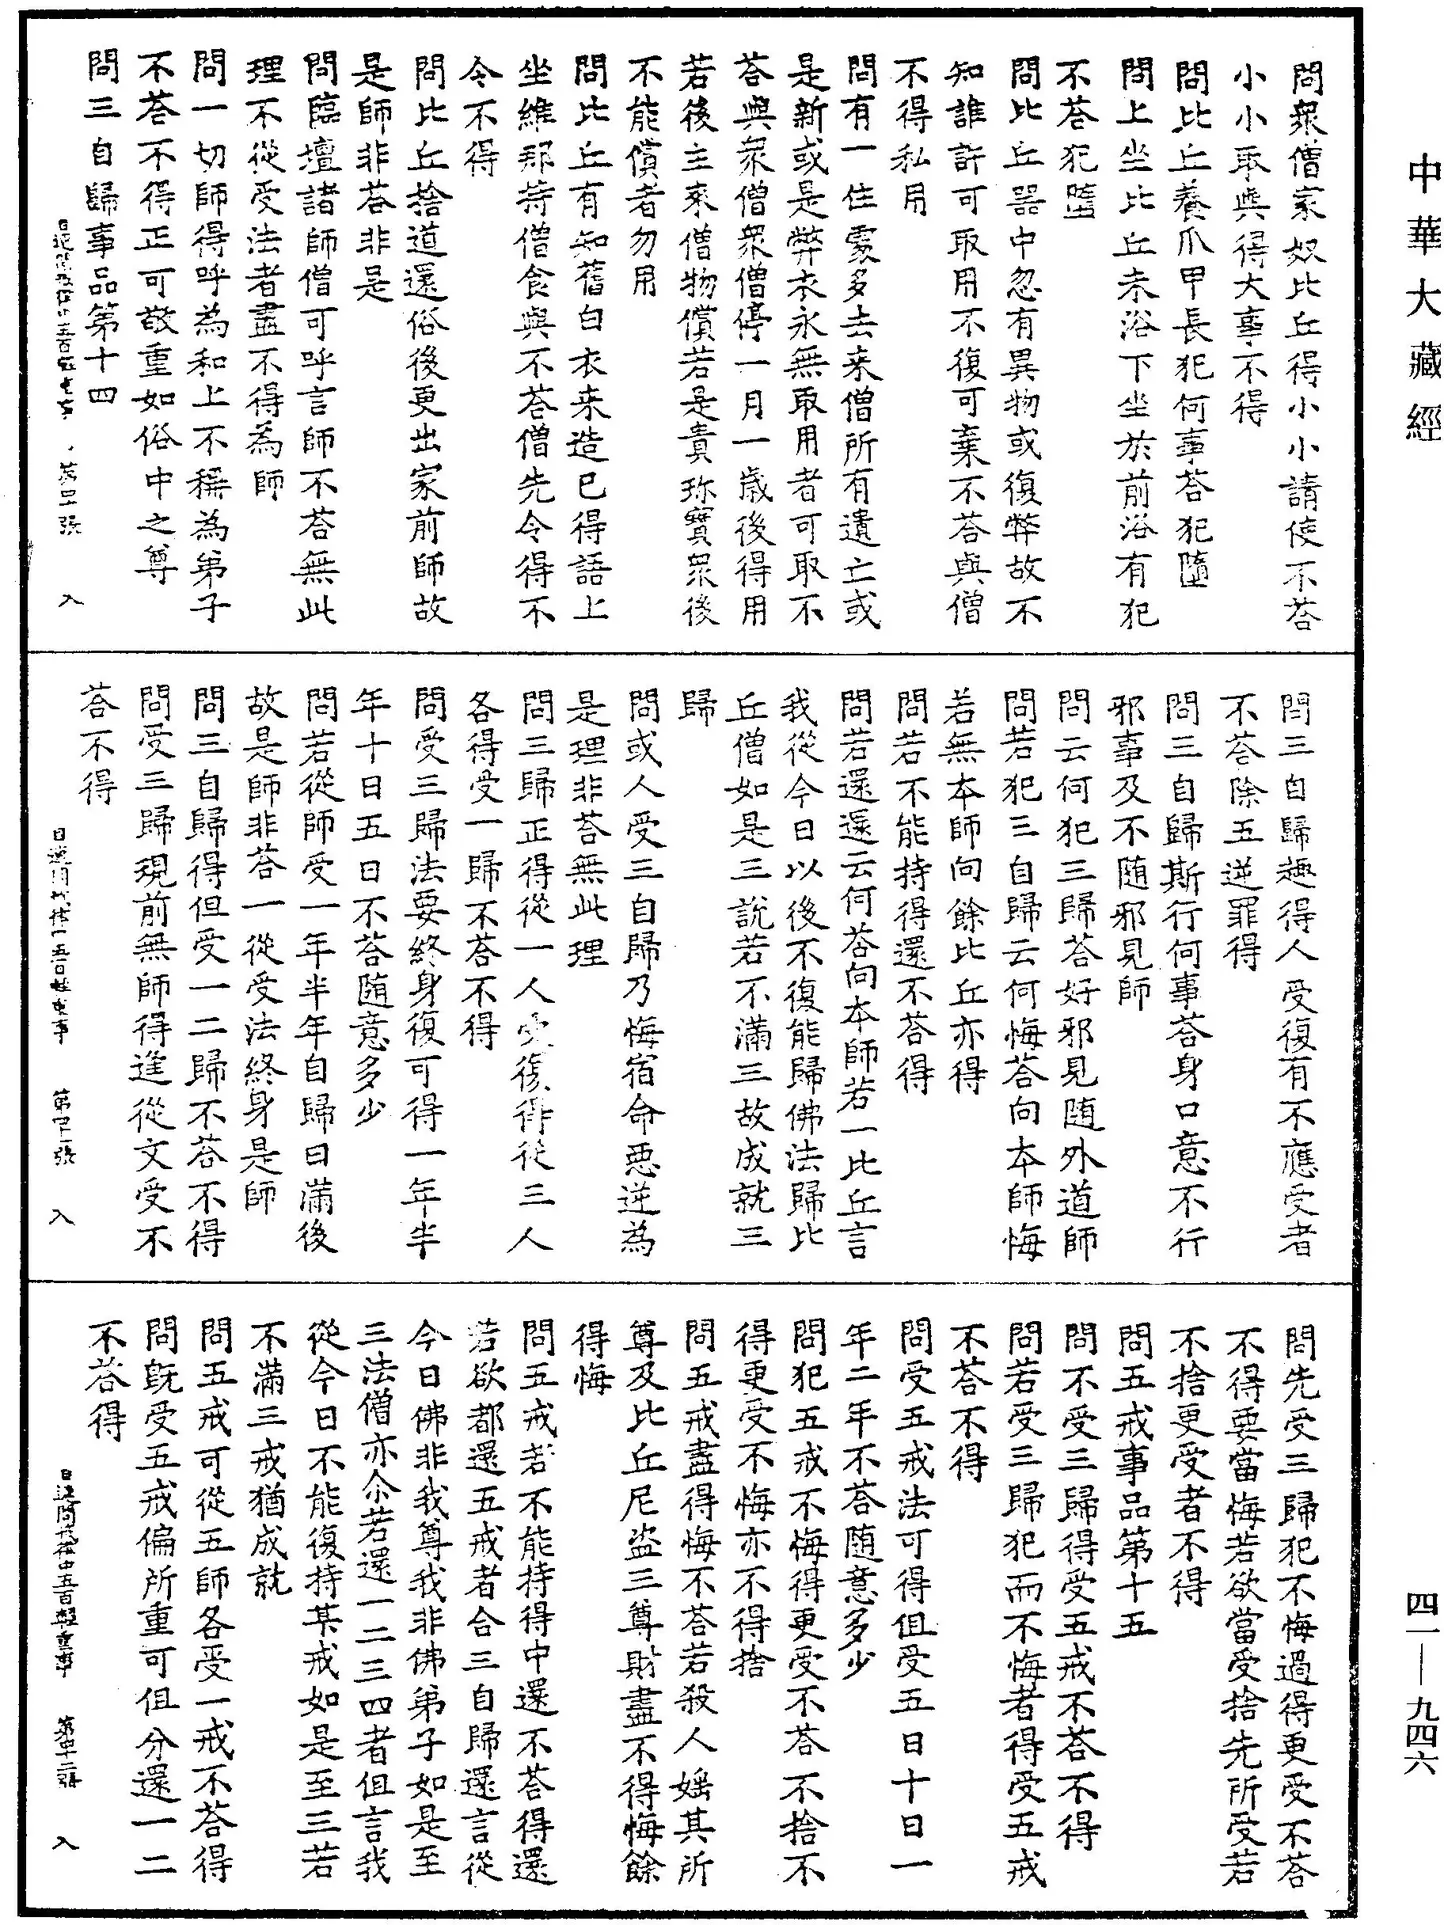 中華大藏經
問衆僧家奴比丘得小小請使不荅
小小取與得大事不得
問比丘養爪甲長犯何事荅犯墮
問上坐比丘未浴下坐於前浴有犯
不荅犯墮
問比丘器中忽有異物或復弊故不
知誰許可取用不復可棄不荅與僧
不得私用
問有一住處多去来僧所有遺亡或
是新或是弊衣永無取用者可取不
荅與衆僧衆僧停一月一歲後得用
若後主來僧物償若是貴珎寳衆後
不能償者勿用
問比丘有知舊白衣来造已得語上
坐維那持僧食與不荅僧先令得不
令不得
問比丘捨道還俗後更出家前師故
是師非荅非是
問臨壇諸師僧可呼言師不荅無此
理不從受法者盡不得為師
問一切師得呼為和上不稱為弟子
不荅不得正可敬重如俗中之尊
問三自歸事品第十四
入
問三自歸趣得人受復有不應受者
不荅除五逆罪得
問三自歸斯行何事荅身口意不行
邪事及不随邪見師
問云何犯三歸荅好邪見随外道師
問若犯三自歸云何悔荅向本師悔
若無本師向餘比丘亦得
問若不能持得還不荅得
問若還還云何荅向本師若一比丘言
我從今日以後不復能歸佛法歸比
丘僧如是三說若不滿三故成就三
歸
問或人受三自歸乃悔宿命惡逆為
是理非荅無此理
問三歸正得從一人受復得從三人
各得受一歸不荅不得
問受三歸法要終身復可得一年半
年十日五日不荅随意多少
問若從師受一年半年自歸日滿後
故是師非荅一從受法終身是師
問三自歸得但受一二歸不荅不得
問受三歸現前無師得進從文受不
荅不得
入
問先受三歸犯不悔過得更受不荅
不得要當悔若欲當受捨先所受若
不捨更受者不得
問五戒事品第十五
問不受三歸得受五戒不荅不得
問若受三歸犯而不悔者得受五戒
不荅不得
問受五戒法可得但受五日十日一
年二年不荅随意多少
問犯五戒不悔得更受不荅不捨不
得更受不悔亦不得捨
問五戒盡得悔不荅若殺人婬其所
尊及比丘尼盗三尊財盡不得悔餘
得悔
問五戒若不能持得中還不荅得還
若欲都還五戒者合三自歸還言從
今日佛非我尊我非佛弟子如是至
三法僧亦尒若還一二三四者但言我
從今日不能復持某戒如是至三若
不滿三戒猶成就
問五戒可從五師各受一戒不荅得
問既受五戒偏所重可但分還一二
不荅得
入
四一—九四六